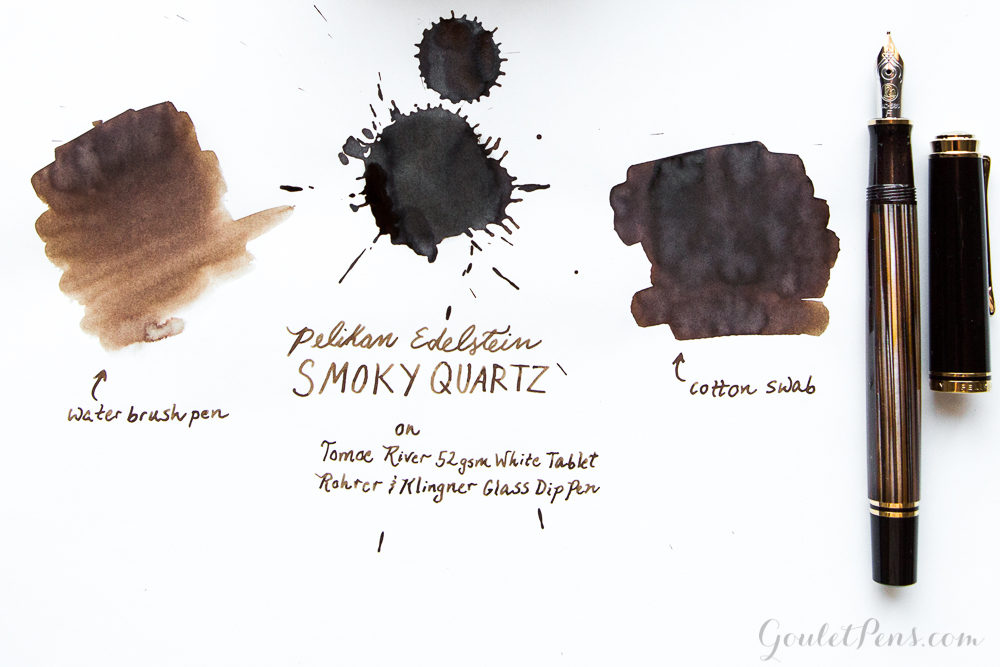 Pelikan Edelstein
SMOKY QUARTZ
water brush pen
cotton swab
on
Tomoe River 52gsm White Tablet
Rohrer & Klingner Glass Dip Pen
GouletPens.com